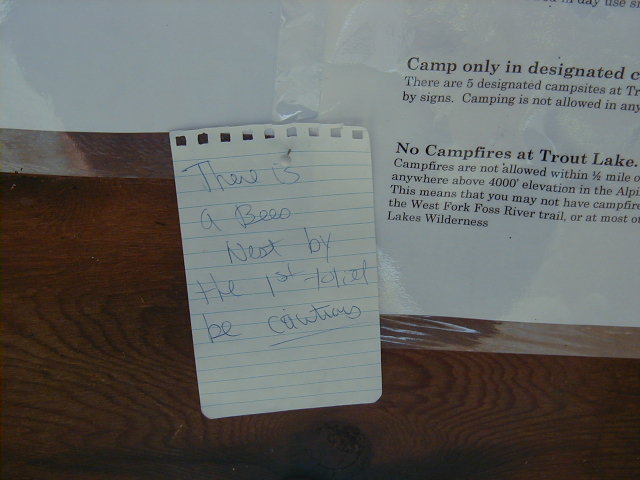 d in day use s
Camp only in designated c
There are 5 designated campsites at Tr
by signs. Camping is not allowed in any
No Campfires at Trout Lake.
Campfires are not allowed within ½ mile o
anywhere above 4000' elevation in the Alpi
This means that you may not have campfire
the West Fork Foss River trail, or at most o
Lakes Wilderness
There is
a Bees
Nest by
the 1st toliet
be cautious